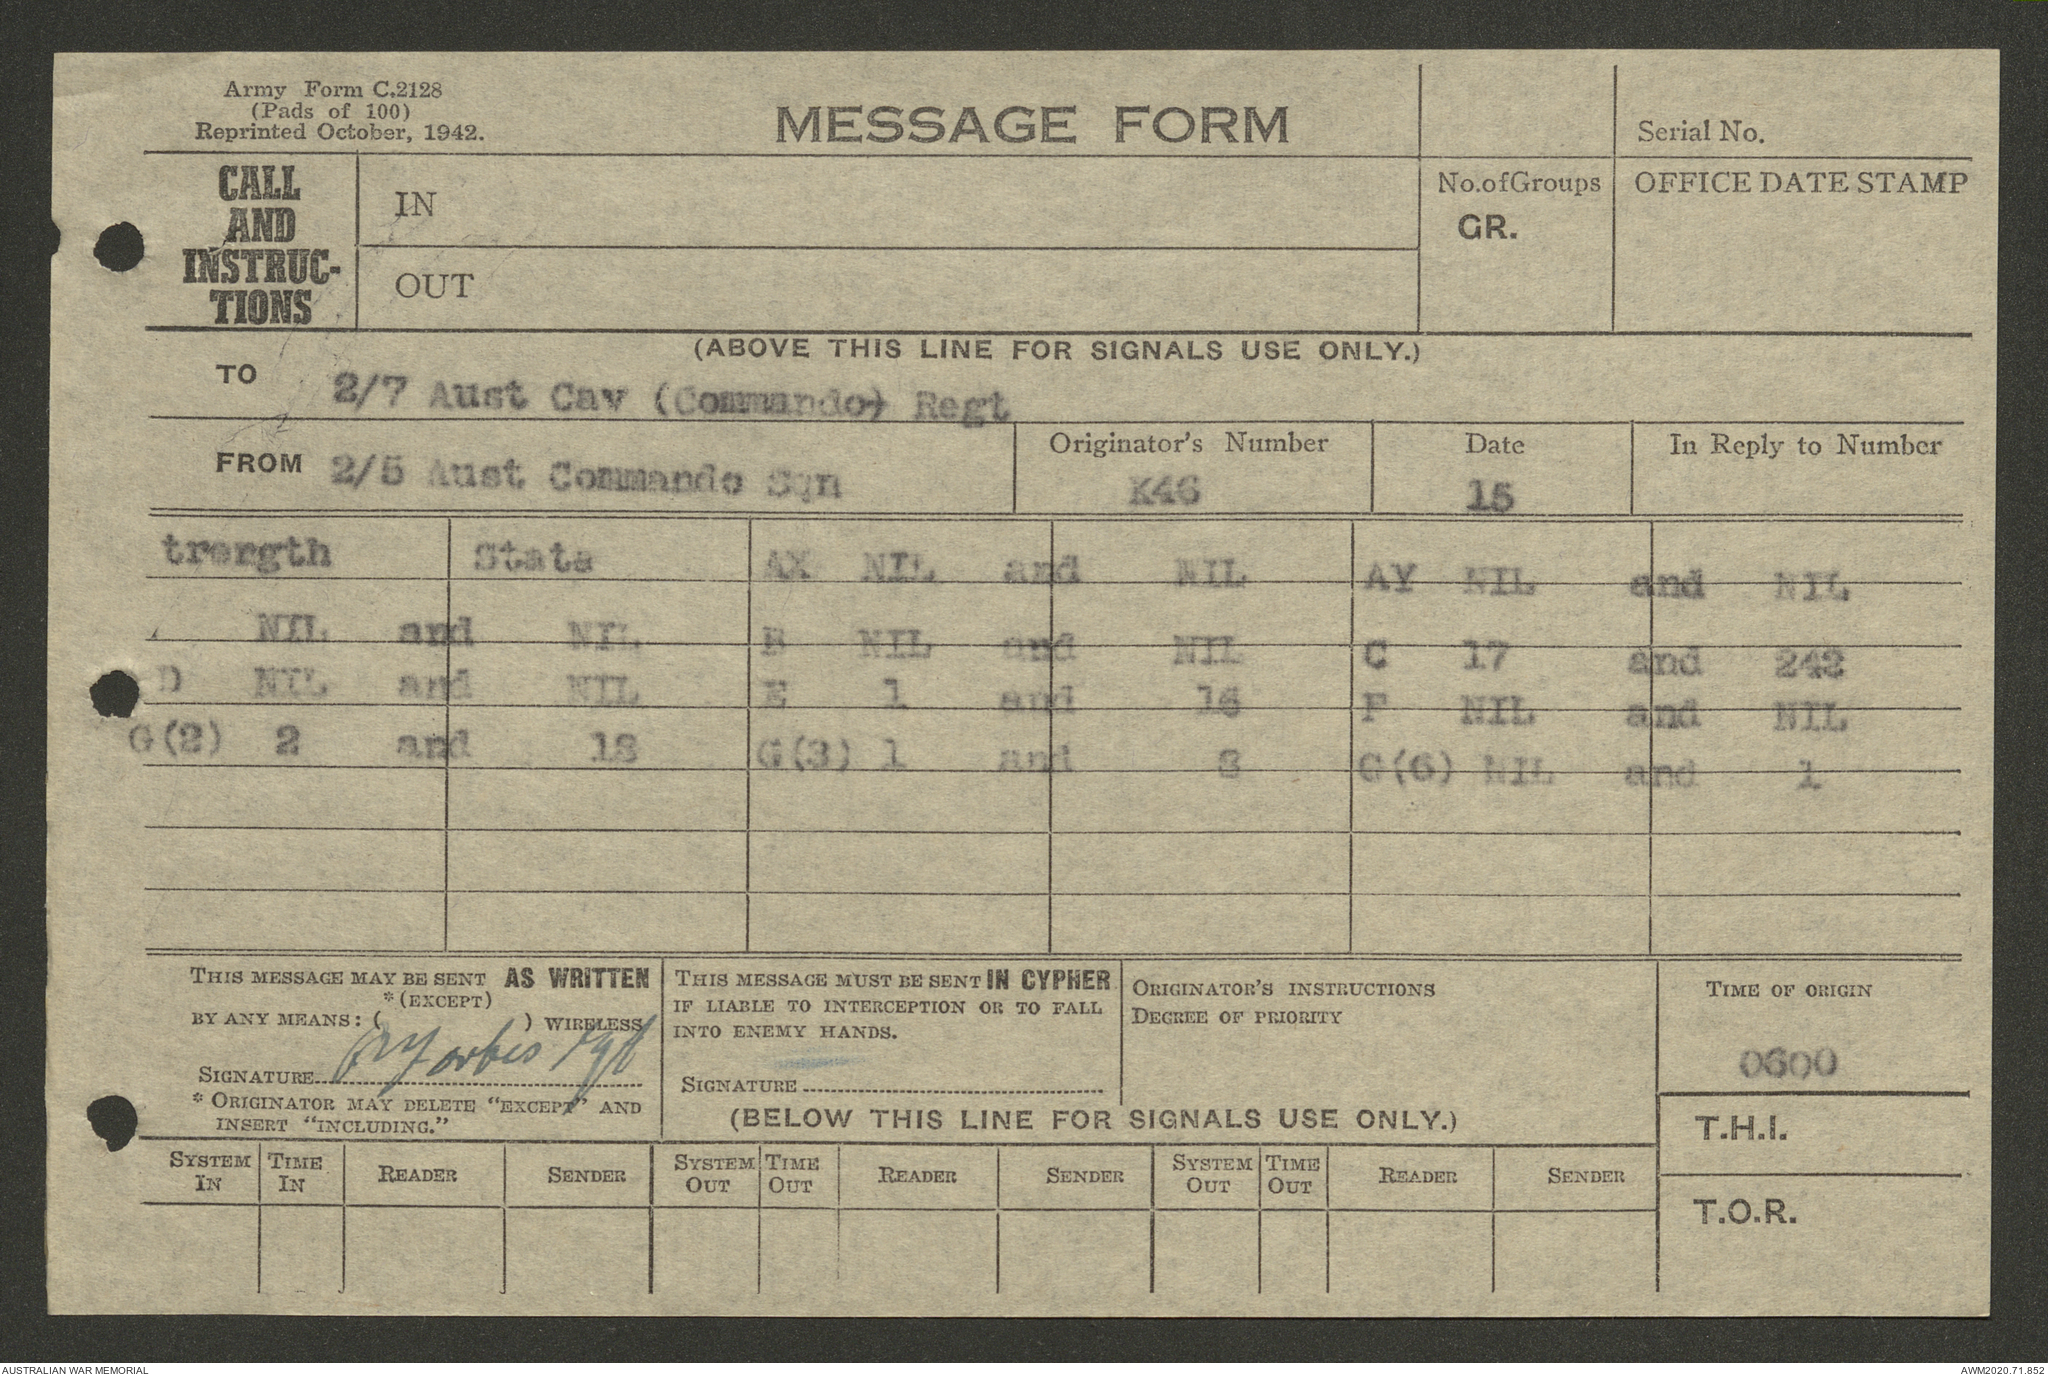 Army Form C.2128
(Pads of 100)
Reprinted October, 1942.
MESSAGE FORM
Serial No.
CALL
AND
INSTRUC-
TIONS
IN
OUT
No. of Groups
GR.
OFFICE DATE STAMP
(ABOVE THIS LINE FOR SIGNALS USE ONLY.)
TO 2/7 Aust Cav (Commando) Regt
FROM 2/5 Aust Commando Sqn
Originator's Number
K46
Date
15
In Reply to Number
trength State AX NIL and NIL AY NIL and NIL
NIL and NIL B NIL and NIL C 17 and 242
D NIL and NIL E 1 and 16 F NIL and NIL
G(2) 2 and 18 G(3) 1 and 8 G(6) NIL and 1
THIS MESSAGE MAY BE SENT AS WRITTEN
*(EXCEPT)
BY ANY MEANS: ( ) WIRELESS
SIGNATURE
* ORIGINATOR MAY DELETE "EXCEPT" AND
INSERT "INCLUDING."
THIS MESSAGE MUST BE SENT IN CYPHER
IF LIABLE TO INTERCEPTION OR TO FALL
INTO ENEMY HANDS.
SIGNATURE
ORIGINATOR'S INSTRUCTIONS
DEGREE OF PRIORITY
TIME OF ORIGIN
0600
(BELOW THIS LINE FOR SIGNALS USE ONLY.)
T.H.I.
T.O.R.
SYSTEM IN TIME IN READER SENDER SYSTEM OUT TIME OUT READER SENDER SYSTEM OUT TIME OUT READER SENDER
AUSTRALIAN WAR MEMORIAL
AWM2020.71.852